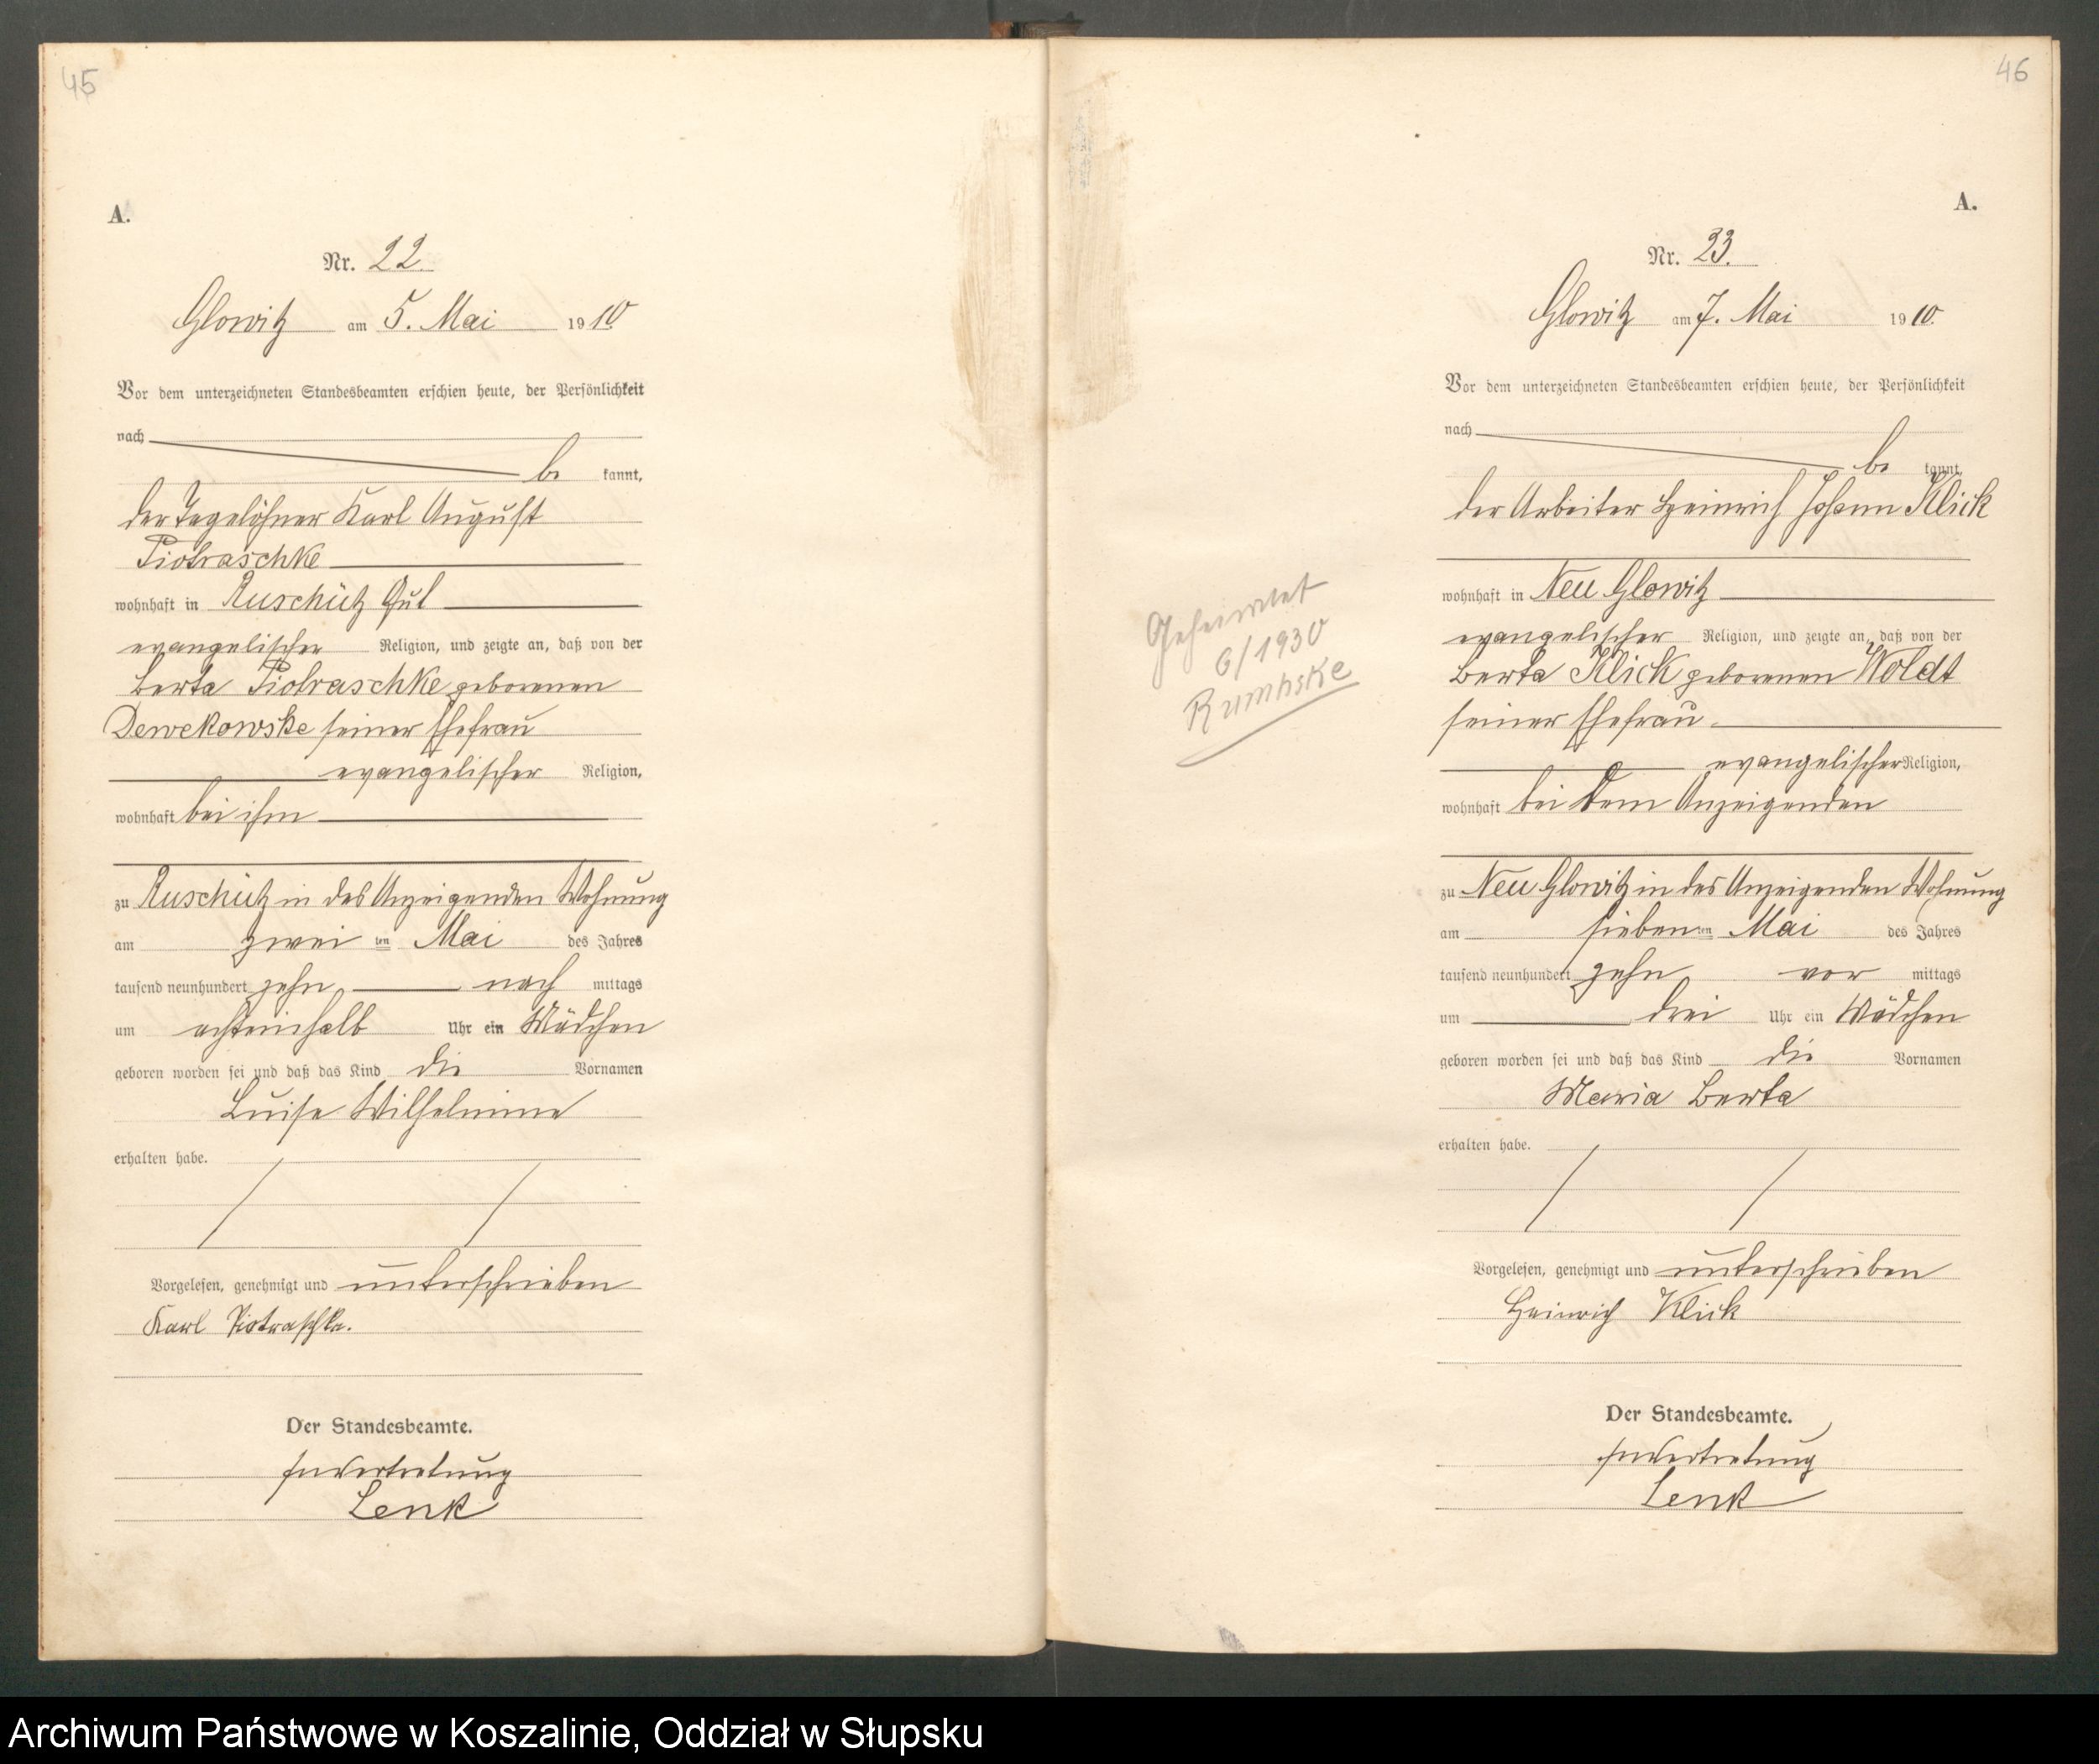 45
A.
Nr. 22.
Glowitz am 5. Mai 1910
Vor dem unterzeichneten Standesbeamten erschien heute, der Persönlichkeit
nach
be kannt,
der Tagelöhner Karl August
Piotraschke
wohnhaft in Ruschütz Gut
evangelischer Religion, und zeigte an, daß von der
Berta Piotraschke geborenen
Dewekowske seiner Ehefrau
evangelischer Religion,
wohnhaft bei ihm
zu Ruschütz in des Anzeigenden Wohnung
am zwei ten Mai des Jahres
tausend neunhundert zehn nach mittags
um achteinhalb Uhr ein Mädchen
geboren worden sei und daß das Kind die Vornamen
Luise Wilhelmine
erhalten habe.
Vorgelesen, genehmigt und unterschrieben
Karl Piotraschke.
Der Standesbeamte.
In Vertretung
Lenk
46
A.
Nr. 23.
Glowitz am 7. Mai 1910.
Vor dem unterzeichneten Standesbeamten erschien heute, der Persönlichkeit
nach
be kannt,
der Arbeiter Heinrich Johann Klick
wohnhaft in Neu Glowitz
evangelischer Religion, und zeigte an, daß von der
Berta Klick geborenen Woldt
seiner Ehefrau
evangelischer Religion,
wohnhaft bei dem Anzeigenden
zu Neu Glowitz in des Anzeigenden Wohnung
am sieben ten Mai des Jahres
tausend neunhundert zehn vor mittags
um drei Uhr ein Mädchen
geboren worden sei und daß das Kind die Vornamen
Maria Berta
erhalten habe.
Vorgelesen, genehmigt und unterschrieben
Heinrich Klick
Der Standesbeamte.
In Vertretung
Lenk
Geheiratet
6/1930
Rumbske
Archiwum Państwowe w Koszalinie, Oddział w Słupsku